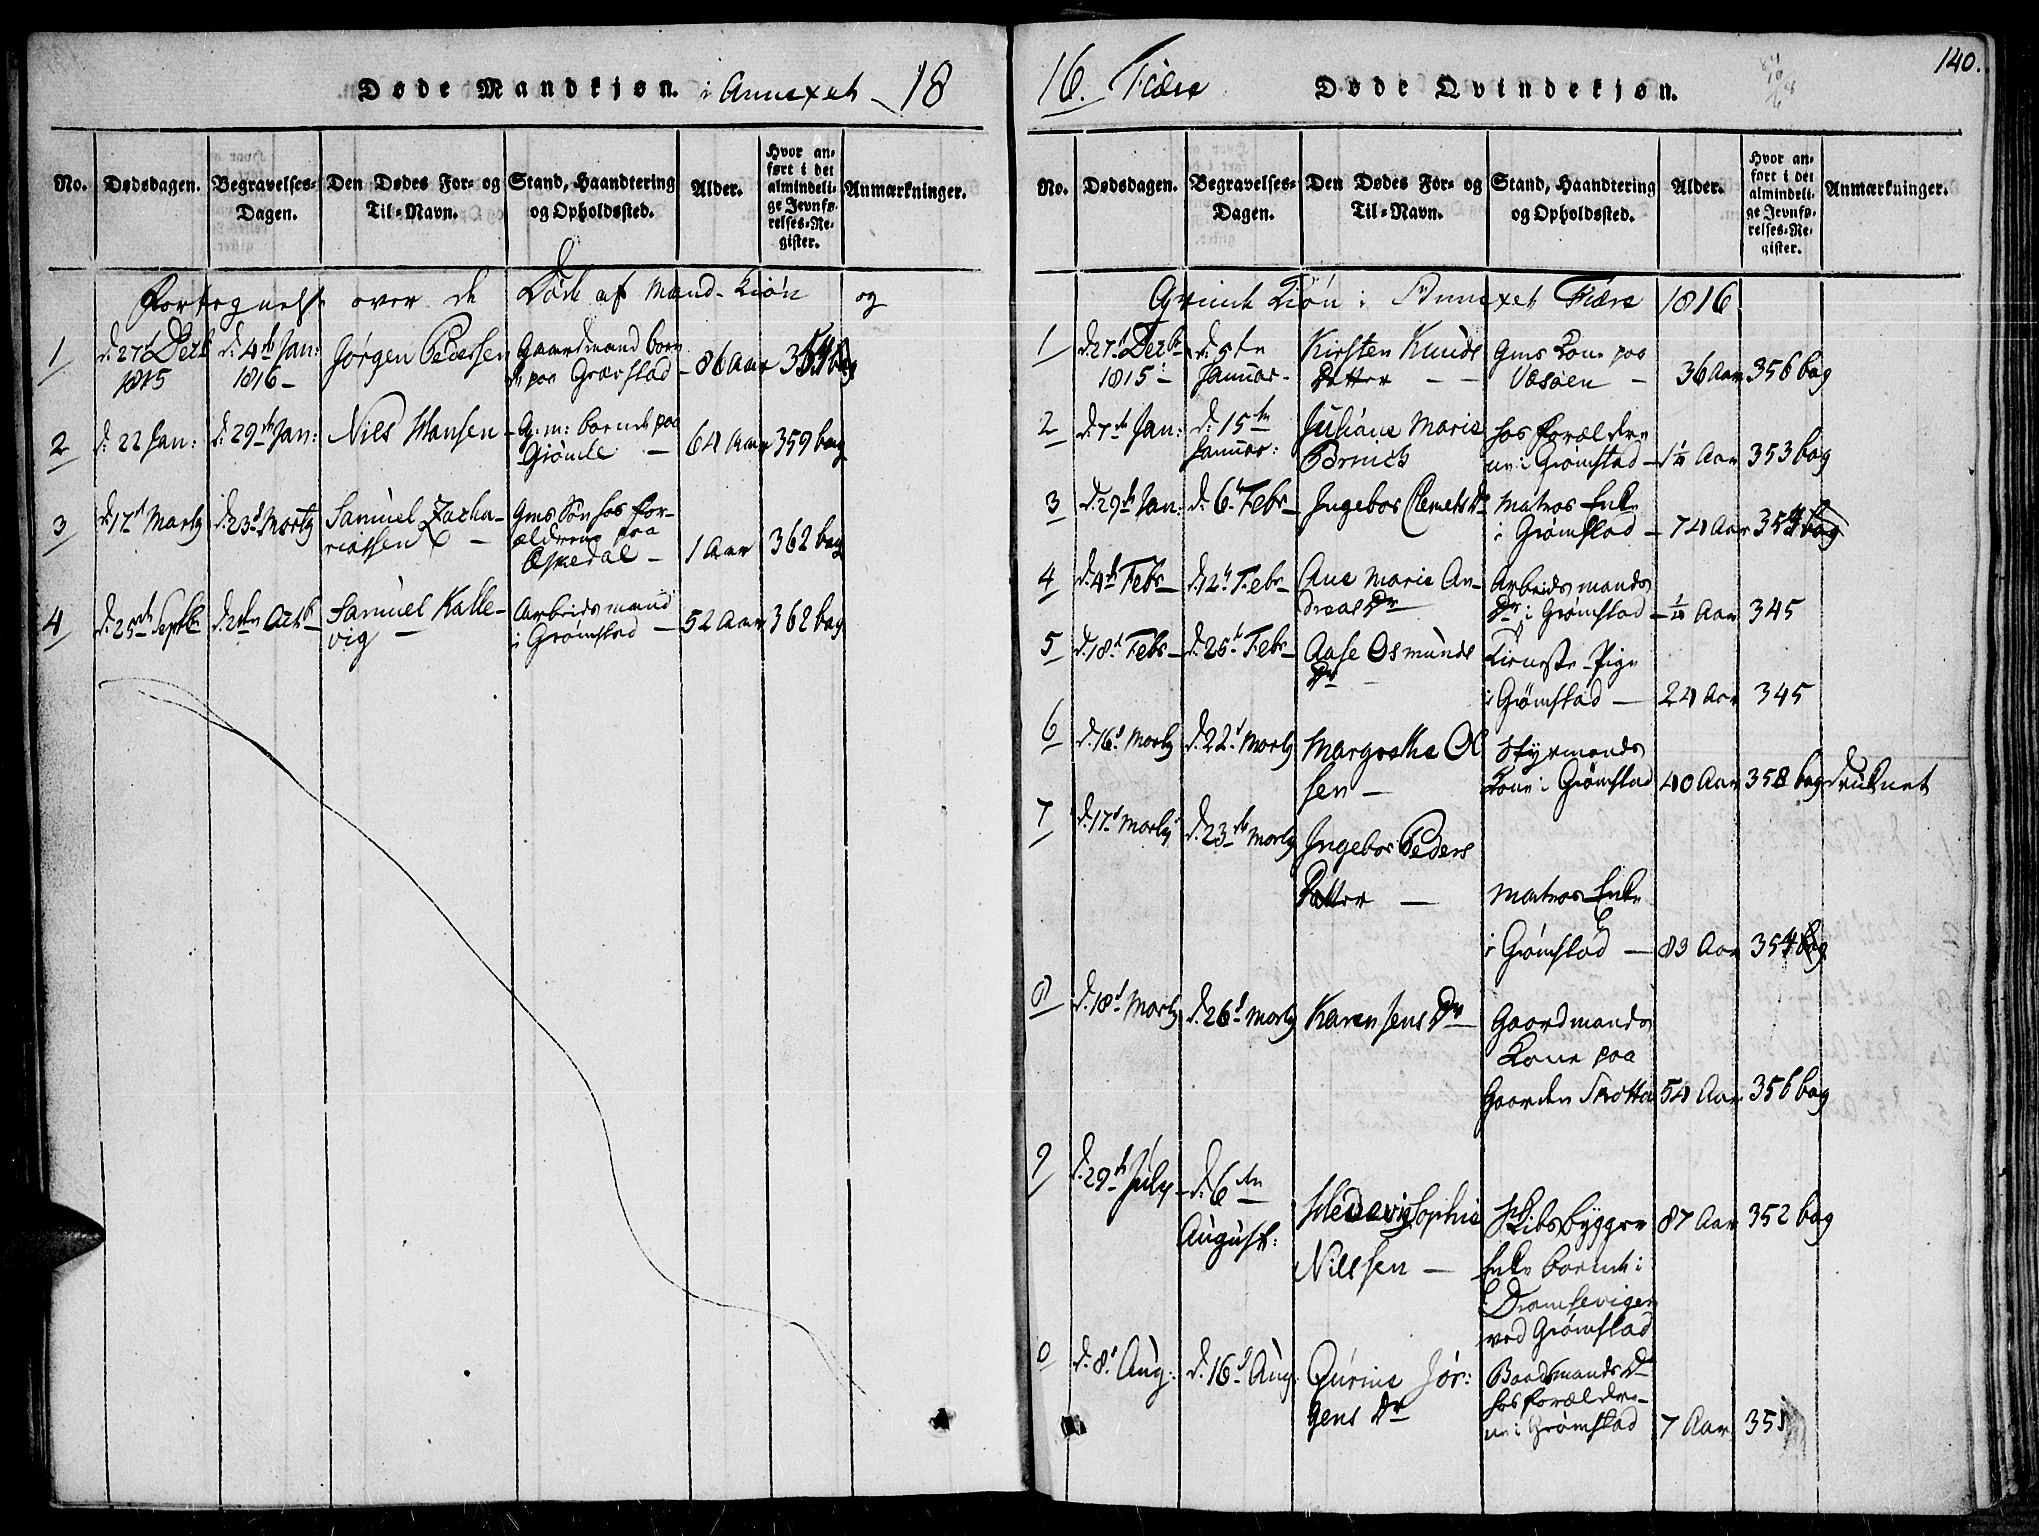 Døde Mandkjøn. i Annexet 18
No. Dødsdagen. Begravelses-Dagen. Den Dødes For- og Til-Navn. Stand, Haandtering og Opholdssted. Alder. Hvor anført i det almindelige Jevnførelses-Register. Anmærkninger.
Fortegnelse over de Døde af Mand-Kiøn og
1 d. 27d Decb 1815 d. 4de Jan: 1816 – Jørgen Pedersen Gaardmand boende paa Græfstad – 86 Aar
2 d. 22 Jan: d. 29de Jan: Niels Hansen – G:m: boende paa Giømle – 64 Aar 359 bag
3 d. 17d Marty d. 23d Marty Samuel Zachariassen – Gms Søn hos Forældrene paa Eskedal – 1 Aar 362 bag
4 d. 25de Septbr d. 2den Octb Samuel Kallevig – Arbeidsmand i Grømstad – 52 Aar 362 bag
16. Fiære Døde Qvindekjøn. 140.
No. Dødsdagen. Begravelses-Dagen. Den Dødes For- og Til-Navn. Stand, Haandtering og Opholdssted. Alder. Hvor anført i det almindelige Jevnførelses-Register. Anmærkninger.
Qvinde Kiøn i Annexet Fiære 1816
1 d. 27d Decbr 1815 – d. 5te Januar – Kirsten Knuds Datter – – Gms Kone paa Vesøen – 36 Aar 356 bag
2 d. 7de Jan: d. 15de Januar: Juliane Marie hos Forældrene i Grømstad – 1¼ Aar 353 bag
3 d. 29de Jan: d. 6t Febr – Ingebor Clemets Dr Matros Enke i Grømstad – 74 Aar 354 bag
4 d. 4de Febr – d. 12t Febr – Ane Marie Andreas Dr Arbeidsmands Dr i Grømstad – ¼ Aar 345
5 d. 18d Febr – d. 25t Febr – Aase Osmunds Dr Tieneste-Pige i Grømstad – 24 Aar 345
6 d. 16d Marty d. 22d Marty Margrethe Olsen – Styrmands Kone i Grømstad 40 Aar 358 bag druknet
7 d. 17d Marty d. 23de Marty Ingebor Peders Datter – Matros Enke i Grømstad – 83 Aar 354 bag
8 d. 18d Marty d. 26d Marty Karen Jens Dr – Gaardmands Kone paa Gaarden Skotta 54 Aar 356 bag
9 d. 29de July – d. 6te August: Hedevig Sophie Nielsen – Skibsbygger Enke boende i Dramsevigen ved Grømstad 87 Aar 352 bag
0 d. 8d Aug: d. 16d Aug: Gurine Jørgens Dr Baadsmands Dr hos Forældrene i Grømstad 7 Aar 351